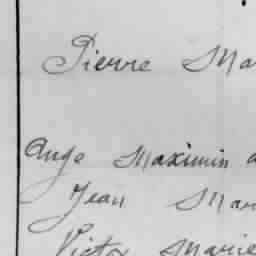 Pierre Ma
Ange Maximin a
Jean Mar
Victor Marie